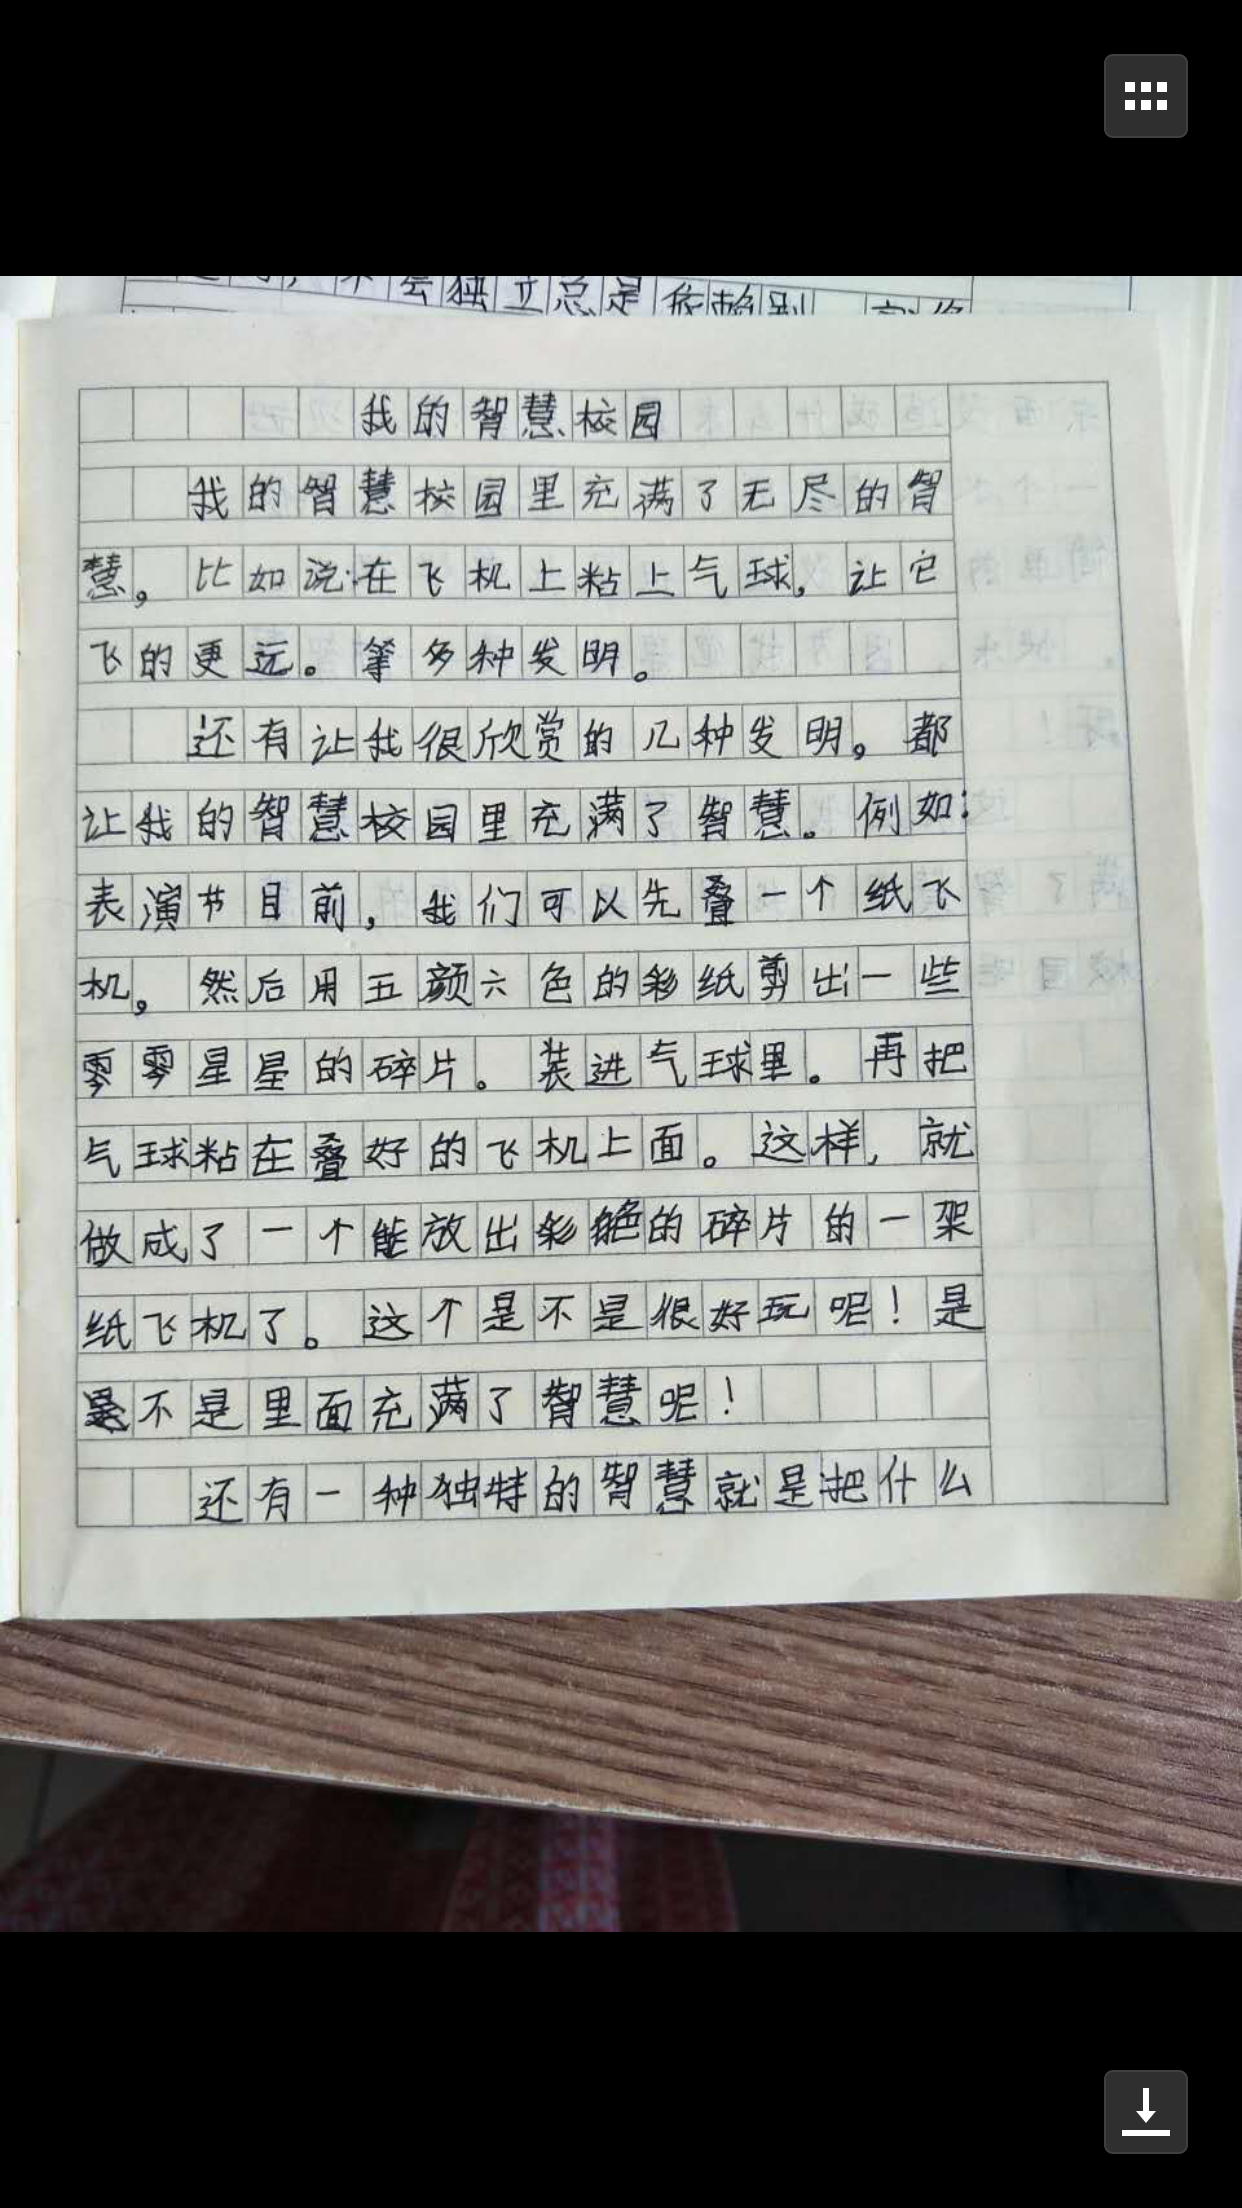 会独立总是依赖别
我的智慧校园
我的智慧校园里充满了无尽的智
慧，比如说:在飞机上粘上气球，让它
飞的更远。等多种发明。
还有让我很欣赏的几种发明。都
让我的智慧校园里充满了智慧。例如:
表演节目前，我们可以先叠一个纸飞
机。然后用五颜六色的彩纸剪出一些
零零星星的碎片。装进气球里。再把
气球粘在叠好的飞机上面。这样，就
做成了一个能放出彩色的碎片的一架
纸飞机了。这个是不是很好玩呢！是
不是里面充满了智慧呢！
还有一种独特的智慧就是把什么